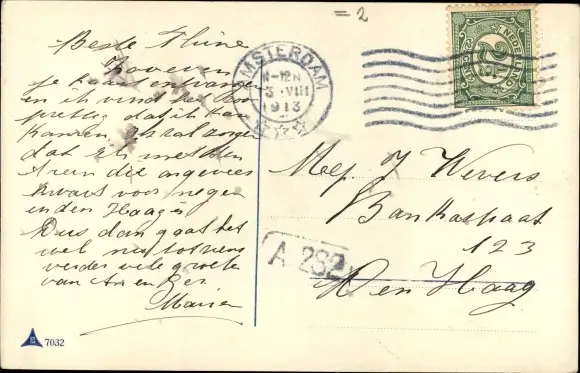 = 2
Beste Mine
Zooeven
je kaart ontvangen
en ik vind het
prettig dat ik kan
komen, ik zal zorgen
dat ik met den
trein die
kwart voor negen
in den Haag is
Dus dan gaat het
wel nu tot ziens
verder vele groete
van
Marie
7032
AMSTERDAM
11-12 N
3 VIII
1913
NEDERLAND
2½
CENT
Mej. J Wevers
Bankastraat
123
Den Haag
A 282